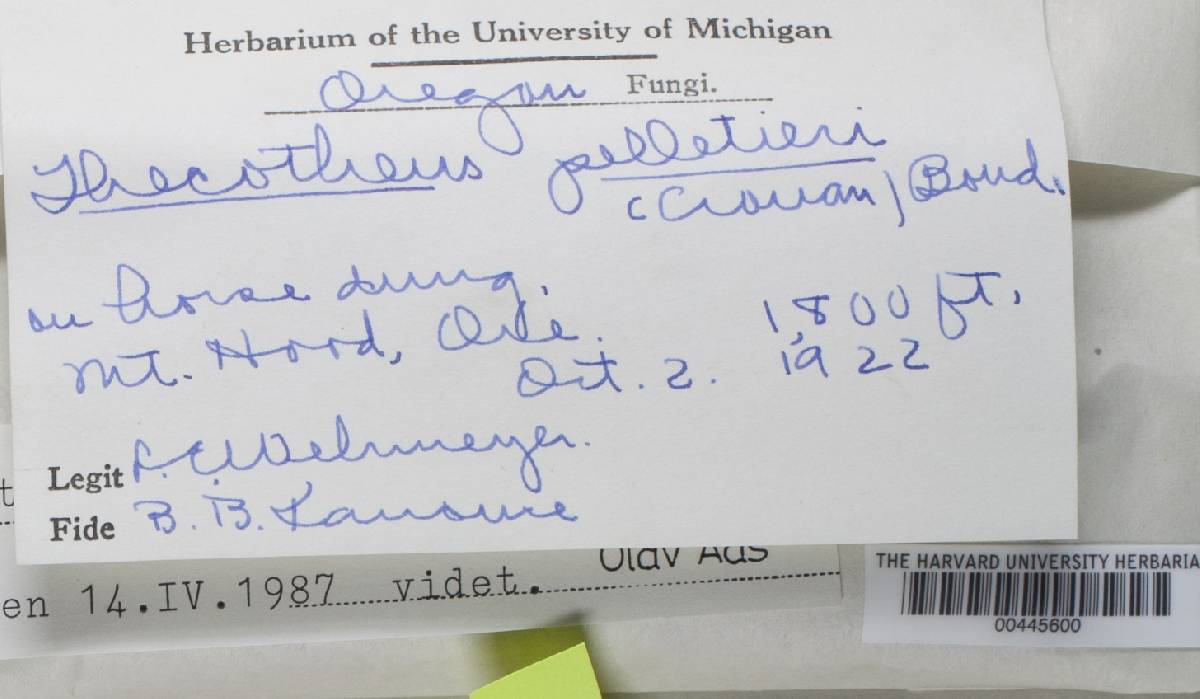 Herbarium of the University of Michigan
Oregon Fungi.
Thecotheus pelletieri
(Crouan) Boud.
on horse dung.
Mt. Hood, Ore. 1,800 ft.
Oct. 2. 1922
Legit L. E. Wehmeyer.
Fide B. B. Kanouse
Olav Aas
en 14.IV.1987 videt.
THE HARVARD UNIVERSITY HERBARIA
00445600